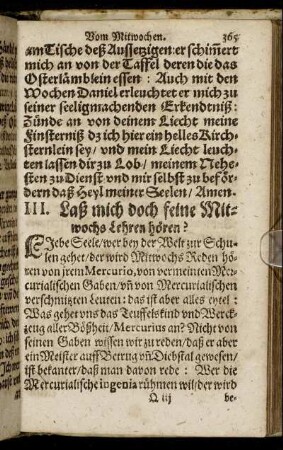 Vom Mitwochen. 365
am Tische deß Aussetzigen: er schim̃ert
mich an von der Taffel deren die das
Osterlämblein essen : Auch mit den
Wochen Daniel erleuchtet er mich zu
seiner seeligmachenden Erkendtniß:
Zünde an von deinem Liecht meine
Finsterniß dz ich hier ein helles Kirch-
sternlein sey/ vnd mein Liecht leuch-
ten lassen dir zu Lob/ meinem Nehe-
sten zu Dienst vnd mir selbst zu beför-
dern daß Heyl meiner Seelen/ Amen.
III. Laß mich doch feine Mit-
wochs Lehren hören?
LIebe Seele/ wer bey der Welt zur Schu-
len gehet/ der wird Mitwochs Reden hö-
ren von jrem Mercurio, von vermeinten Mer-
curialischen Gaben/ vñ von Mercurialischen
verschmitzten Leuten: das ist aber alles eytel :
Was gehet vns das Teuffelskind vnd Werck-
zeug aller Bößheit/ Mercurius an? Nicht von
seinen Gaben wissen wir zu reden/ daß er aber
ein Meister auff Betrug vñ Diebstal gewesen/
ist bekanter/ daß man davon rede : Wer die
Mercurialische ingenia rühmen wil/ der wird
Q iij be-